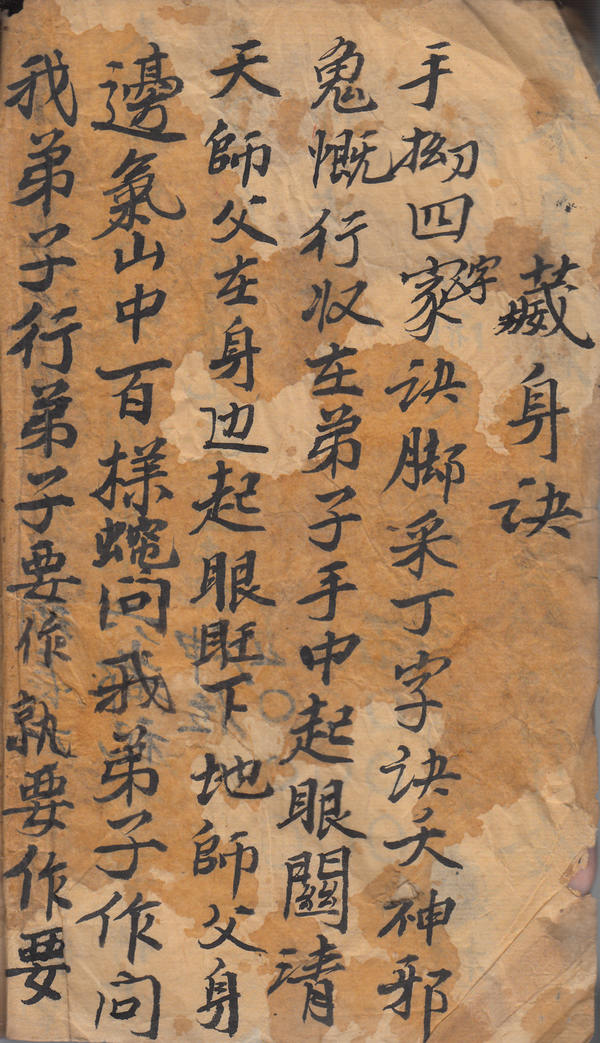 藏身訣
手抝四家字訣脚采丁字訣天神邪
鬼慨行收在弟子手中起眼關清
天師父在身边起眼眐下地師父身
邊氣山中百樣蜿问我弟子作问
我弟子行弟子要作孰要作要